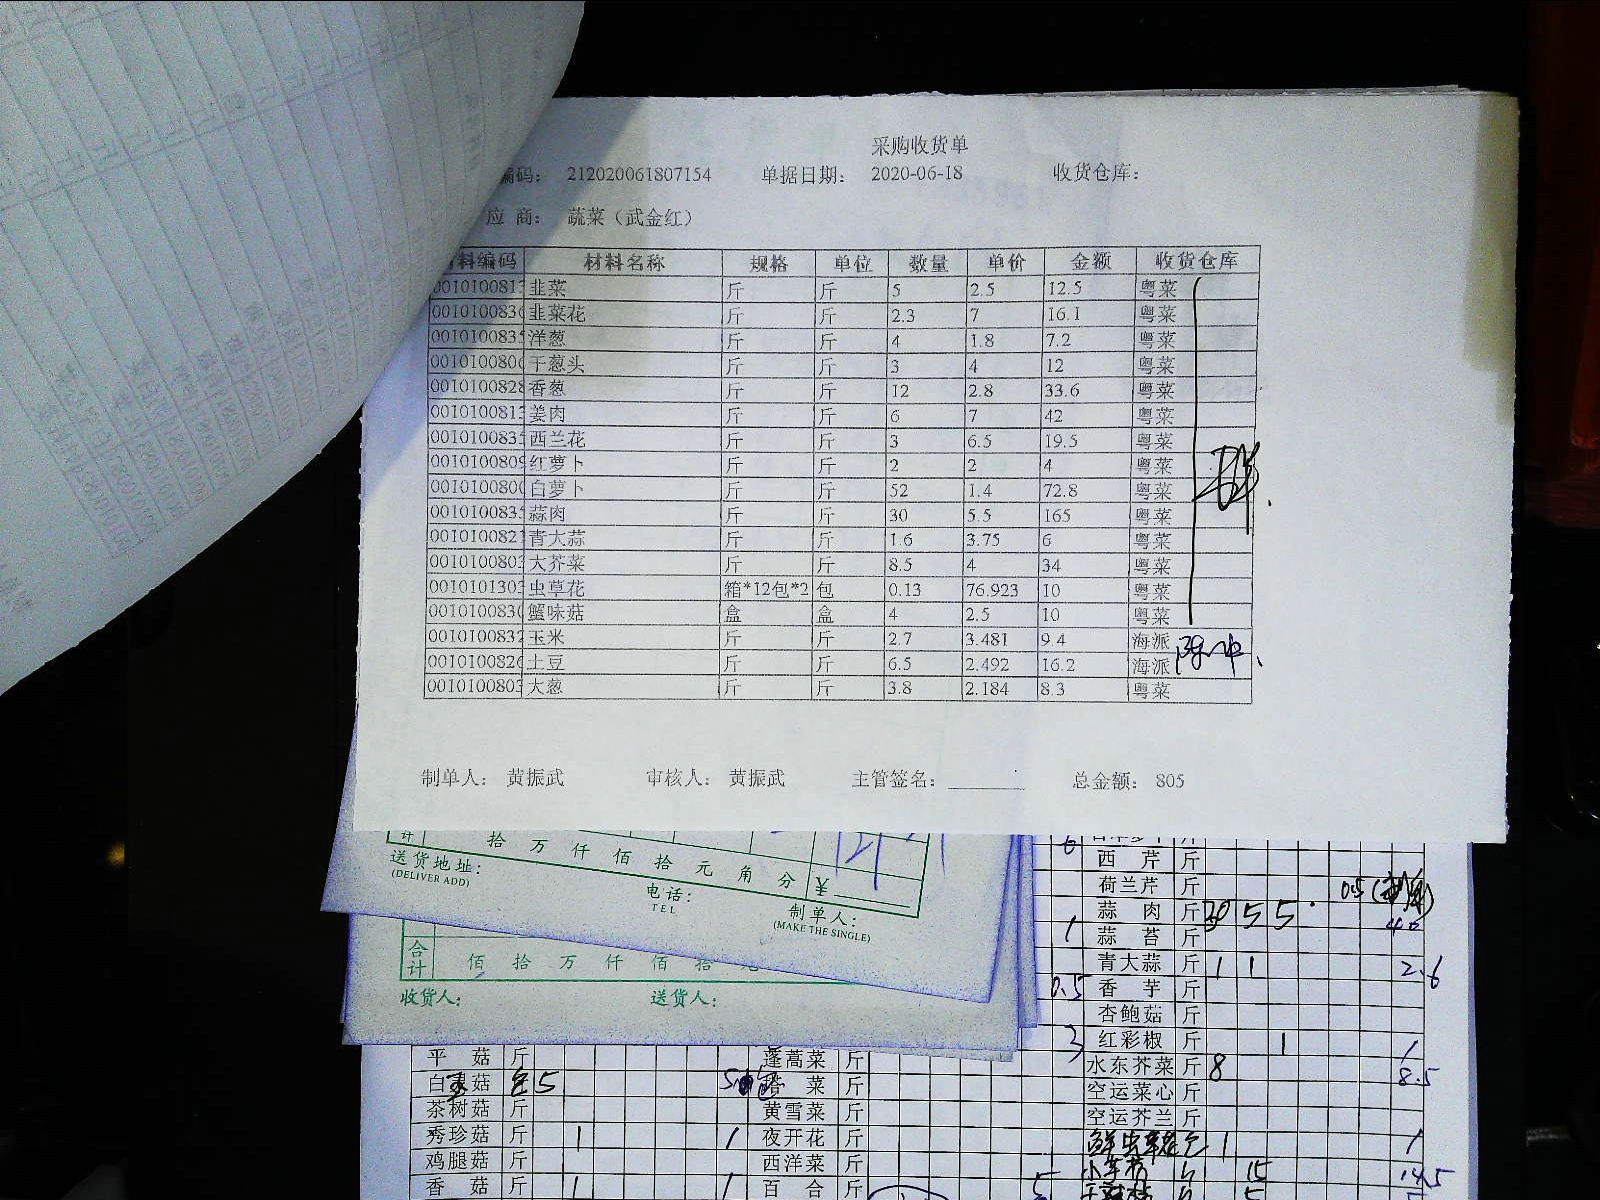 采购收货单
编码: 212020061807154 单据日期: 2020-06-18 收货仓库:
应 商: 蔬菜（武金红）
料编码 材料名称 规格 单位 数量 单价 金额 收货仓库
001010081 韭菜 斤 斤 5 2.5 12.5 粤菜
001010083 韭菜花 斤 斤 2.3 7 16.1 粤菜
001010083 洋葱 斤 斤 4 1.8 7.2 粤菜
001010080 干葱头 斤 斤 3 4 12 粤菜
001010082 香葱 斤 斤 12 2.8 33.6 粤菜
001010081 姜肉 斤 斤 6 7 42 粤菜
001010083 西兰花 斤 斤 3 6.5 19.5 粤菜
001010080 红萝卜 斤 斤 2 2 4 粤菜
001010080 白萝卜 斤 斤 52 1.4 72.8 粤菜
001010083 蒜肉 斤 斤 30 5.5 165 粤菜
001010082 青大蒜 斤 斤 1.6 3.75 6 粤菜
001010080 大芥菜 斤 斤 8.5 4 34 粤菜
001010130 虫草花 箱*12包*2 包 0.13 76.923 10 粤菜
001010083 蟹味菇 盒 盒 4 2.5 10 粤菜
001010083 玉米 斤 斤 2.7 3.481 9.4 海派
001010082 土豆 斤 斤 6.5 2.492 16.2 海派
001010080 大葱 斤 斤 3.8 2.184 8.3 粤菜
制单人: 黄振武 审核人: 黄振武 主管签名: 总金额: 805
计 拾 万 仟 佰 拾 元 角 分 ¥
送货地址:
(DELIVER ADD)
电话:
TEL
制单人:
(MAKE THE SINGLE)
合计 佰 拾 万 仟 佰 拾
收货人: 送货人:
6
西 芹 斤
荷兰芹 斤 0.5
蒜 肉 斤 30 5 5
1 蒜 苔 斤
青大蒜 斤 1 1 2.6
0.5 香 芋 斤
杏鲍菇 斤
3 红彩椒 斤 1 1
水东芥菜 斤 8 8.5
空运菜心 斤
空运芥兰 斤
1 1
15 14.5
平 菇 斤 蓬蒿菜 斤
菇 5 5 菜 斤
茶树菇 斤 黄雪菜 斤
秀珍菇 斤 1 1 夜开花 斤
鸡腿菇 斤 西洋菜 斤
香 菇 斤 1 1 百 合 斤 5